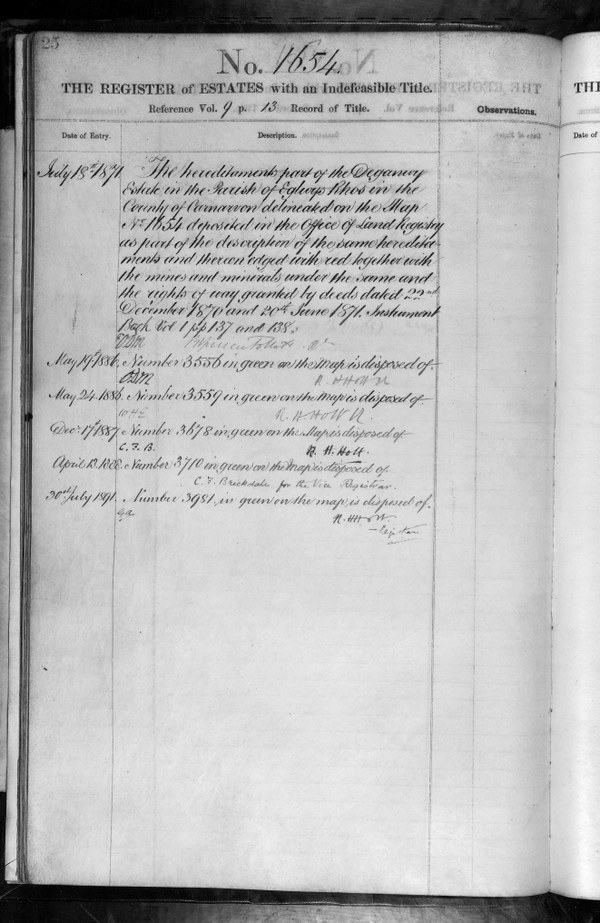 25
No. 1654.
THE REGISTER of ESTATES with an Indefeasible Title.
Reference Vol. 9 p. 13 Record of Title.
Observations.
Date of Entry.
Description.
July 18th 1871. The hereditaments part of the Deganwy
Estate in the Parish of Eglwys Rhos in the
County of Carnarvon delineated on the Map
No. 1654 deposited in the Office of Land Registry
as part of the description of the same heredita-
ments and thereon edged with red together with
the mines and minerals under the same and
the rights of way granted by deeds dated 22nd
December 1870 and 20th June 1871. Instrument
Book Vol 1 pp 137 and 138.
May 19th 1886. Number 3556 in green on the map is disposed of.
R. H HOLT
May 24. 1886. Number 3559 in green on the map is disposed of.
R. H HOLT
Decr. 17th 1887 Number 3678 in green on the Map is disposed of
C. F. B. R. H. Holt.
April 13. 1888. Number 3710 in green on the map is disposed of
C. F. Brickdale for the Vice Registrar.
30th July 1891. Number 3981, in green on the map, is disposed of.
R. H HOLT.
Registrar
THE
Date of